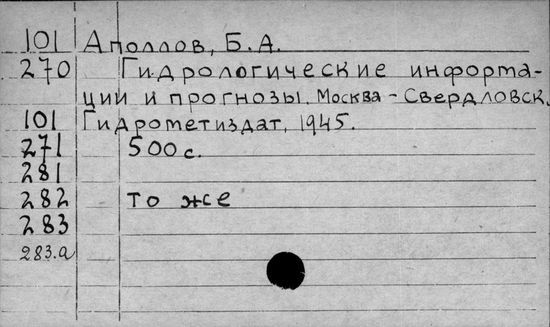 101 Аполлов, Б.А.
270 Гидрологические информа-
ции и прогнозы. Москва - Свердловск,
101 Гидрометиздат, 1945.
271 500 с.
281
282 то же
283
283.а